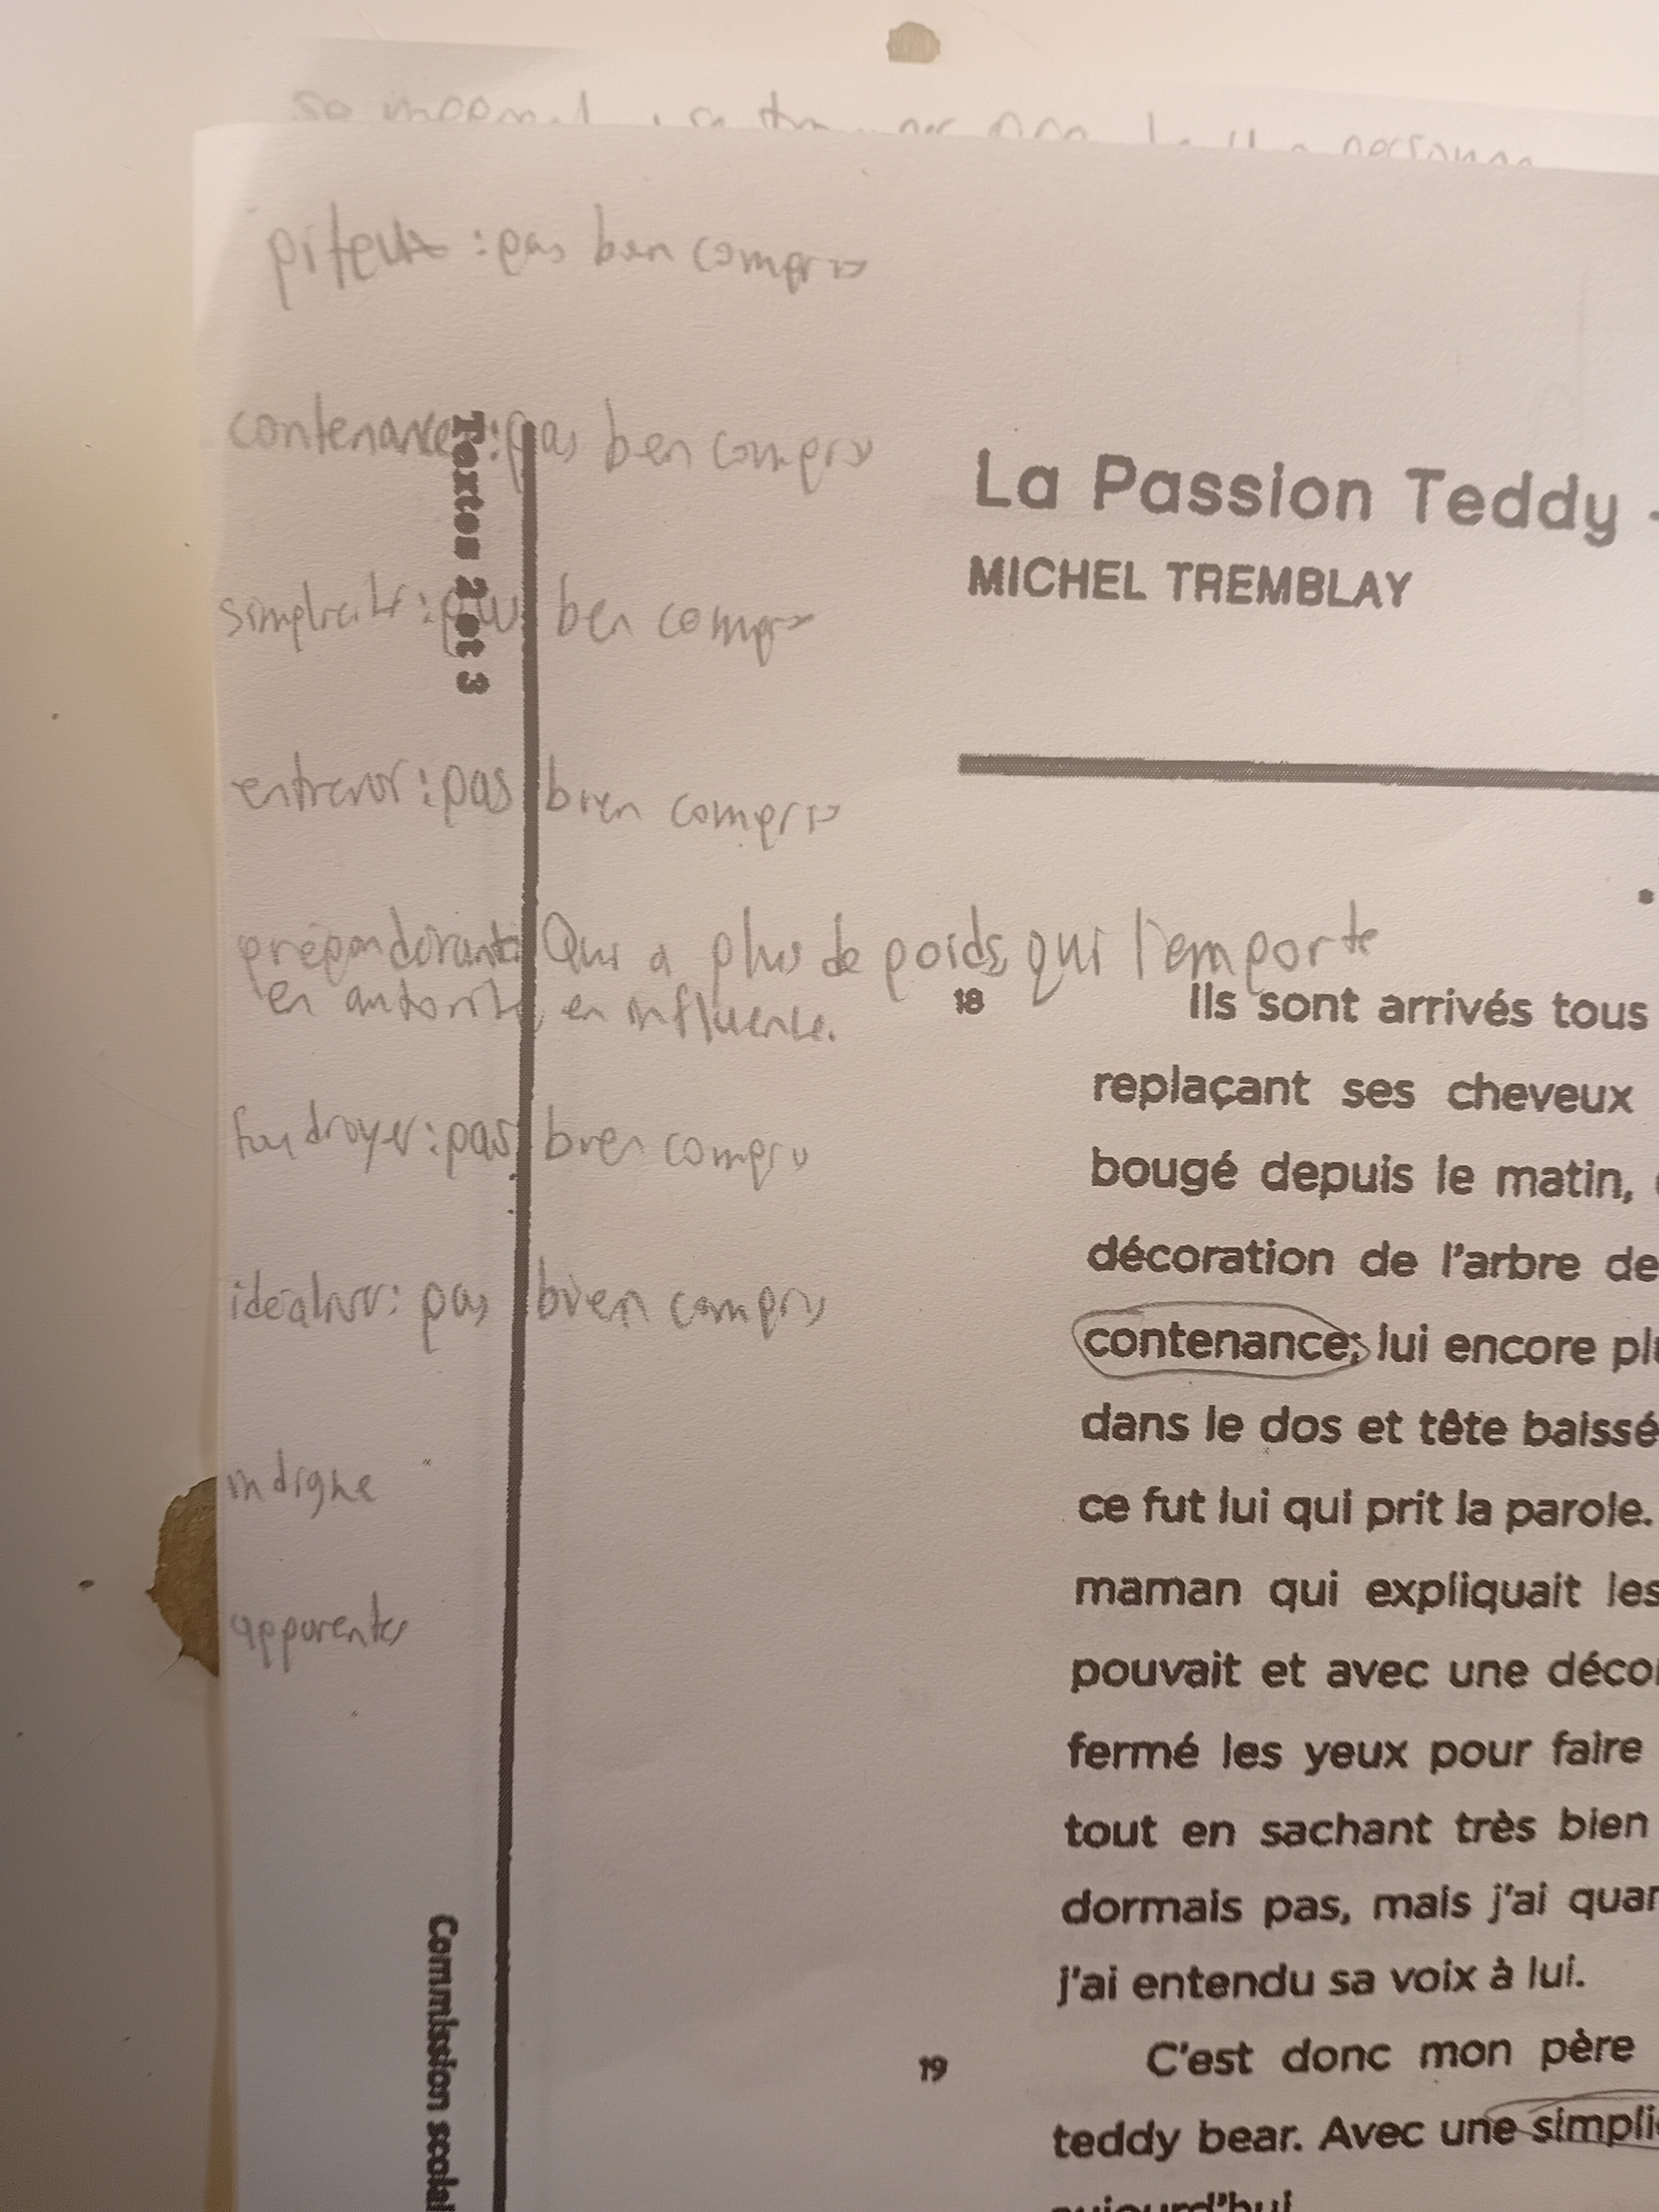 piteux : pas ben compris
contenance : pas ben compris
simplicité : pas ben compris
entrevoir : pas bien compris
prépondérante Qui a plus de poids, qui l'emporte
en autorité, en influence.
foudroyer : pas bien compris
idéaliser : pas bien compris
indigne
apparentes
Textes 2 et 3
Commission scolai
La Passion Teddy -
MICHEL TREMBLAY
18 Ils sont arrivés tous
replaçant ses cheveux
bougé depuis le matin,
décoration de l'arbre de
contenance; lui encore pl
dans le dos et tête baissé
ce fut lui qui prit la parole.
maman qui expliquait les
pouvait et avec une déco
fermé les yeux pour faire
tout en sachant très bien
dormais pas, mais j'ai quan
j'ai entendu sa voix à lui.
19 C'est donc mon père
teddy bear. Avec une simpli
aujourd'hui